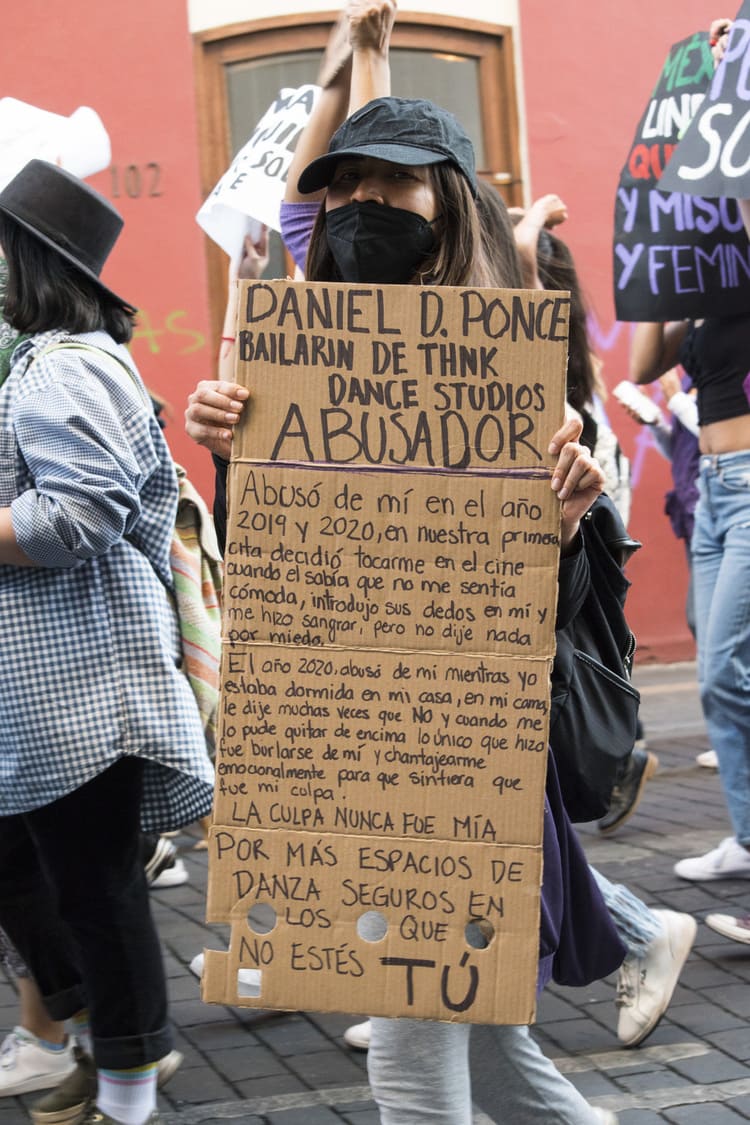 102
DANIEL D. PONCE
BAILARIN DE THNK
DANCE STUDIOS
ABUSADOR
Abusó de mí en el año
2019 y 2020, en nuestra primera
cita decidió tocarme en el cine
cuando el sabía que no me sentía
cómoda, introdujo sus dedos en mí y
me hizo sangrar, pero no dije nada
por miedo.
El año 2020, abusó de mi mientras yo
estaba dormida en mi casa, en mi cama,
le dije muchas veces que NO y cuando me
lo pude quitar de encima lo único que hizo
fue burlarse de mí y chantajearme
emocionalmente para que sintiera que
fue mi culpa.
LA CULPA NUNCA FUE MÍA
POR MÁS ESPACIOS DE
DANZA SEGUROS EN
LOS QUE
NO ESTÉS TÚ
MÉX
LIN
QU
Y MISO
Y FEMIN
SO